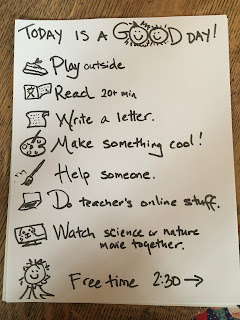 TODAY IS A GOOD DAY!
Play outside
Read 20+ min
Write a letter.
Make something cool!
Help someone.
Do teacher's online stuff.
Watch science or nature
movie together.
Free time 2:30 →